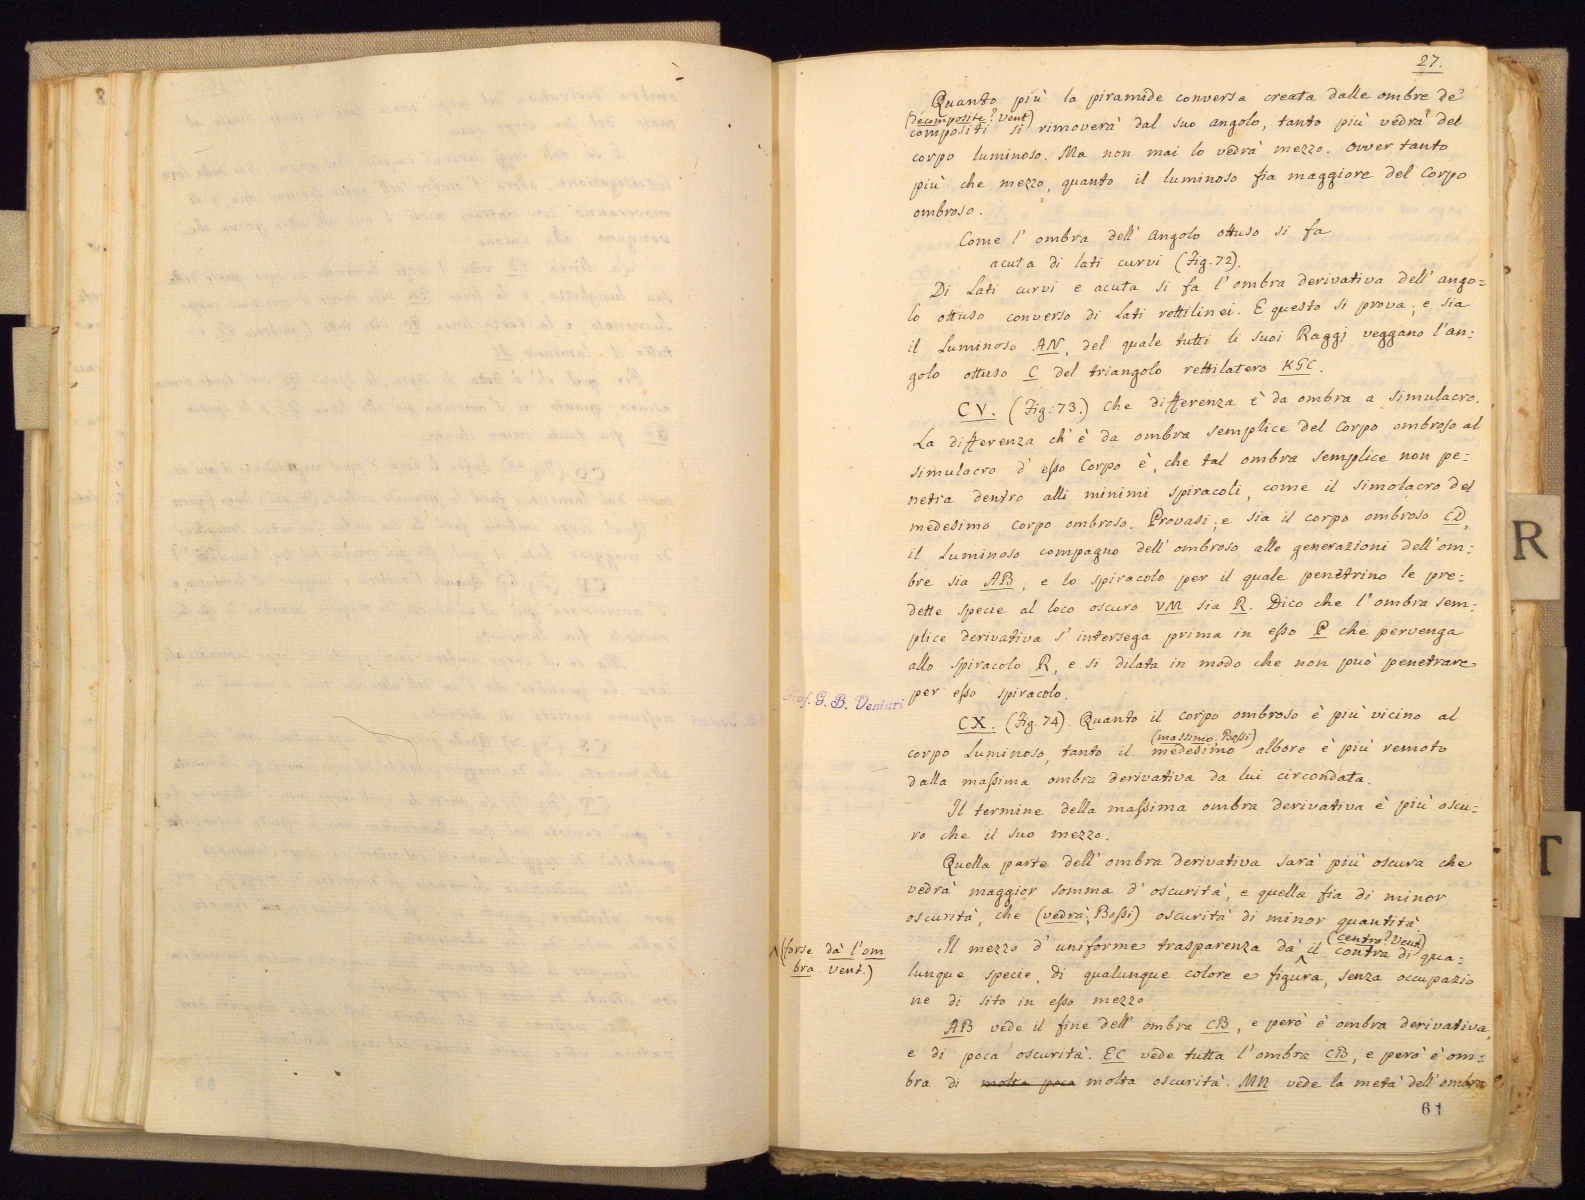 27.
Quanto più la piramide conversa creata dalle ombre de'
(decomposite? Vent)
compositi si rimoverà dal suo angolo, tanto più vedrà del
corpo luminoso. Ma non mai lo vedrà mezzo. Ovver tanto
più che mezzo, quanto il luminoso fia maggiore del Corpo
ombroso.
Come l' ombra dell' Angolo ottuso si fa
acuta di lati curvi (Fig. 72).
Di Lati curvi e acuta si fa l' ombra derivativa dell' ango=
lo ottuso converso di Lati rettilinei. E questo si prova; e sia
il Luminoso AN, del quale tutti li suoi Raggj veggano l'an=
golo ottuso C del triangolo rettilatero KGC.
CV. (Fig: 73.) Che differenza è da ombra a simulacro.
La differenza ch' è da ombra semplice del Corpo ombroso al
simulacro d' esso Corpo è, che tal ombra semplice non pe=
netra dentro alli minimi spiracoli, come il simolacro del
medesimo corpo ombroso. Provasi; e sia il corpo ombroso CD,
il Luminoso compagno dell' ombroso alle generazioni dell' om=
bre sia AB, e lo spiracolo per il quale penetrino le pre=
dette specie al loco oscuro VM sia R. Dico che l' ombra sem=
plice derivativa s' intersega prima in esso P che pervenga
allo spiracolo R, e si dilata in modo che non può penetrare
per esso spiracolo.
Prof. G. B. Venturi
CX. (Fig. 74) Quanto il corpo ombroso è più vicino al
(massimo. Bossi)
corpo Luminoso, tanto il medesimo albore è più remoto
dalla massima ombra derivativa da lui circondata.
Il termine della massima ombra derivativa è più oscu=
ro che il suo mezzo.
Quella parte dell' ombra derivativa sarà più oscura che
vedrà maggior somma d' oscurità, e quella fia di minor
oscurità, che (vedrà; Bossi) oscurità di minor quantità
(centro? Vent)
Il mezzo d' uniforme trasparenza dà il contra di qua=
^(forse dà l'om
bra Vent.)
lunque specie, di qualunque colore e figura, senza occupazio
ne di sito in esso mezzo
AB vede il fine dell' ombra CB, e però è ombra derivativa,
e di poca oscurità. EC vede tutta l' ombra CB, e però è om=
bra di molta poca molta oscurità. MN vede la metà dell' ombra
61
R
T
8